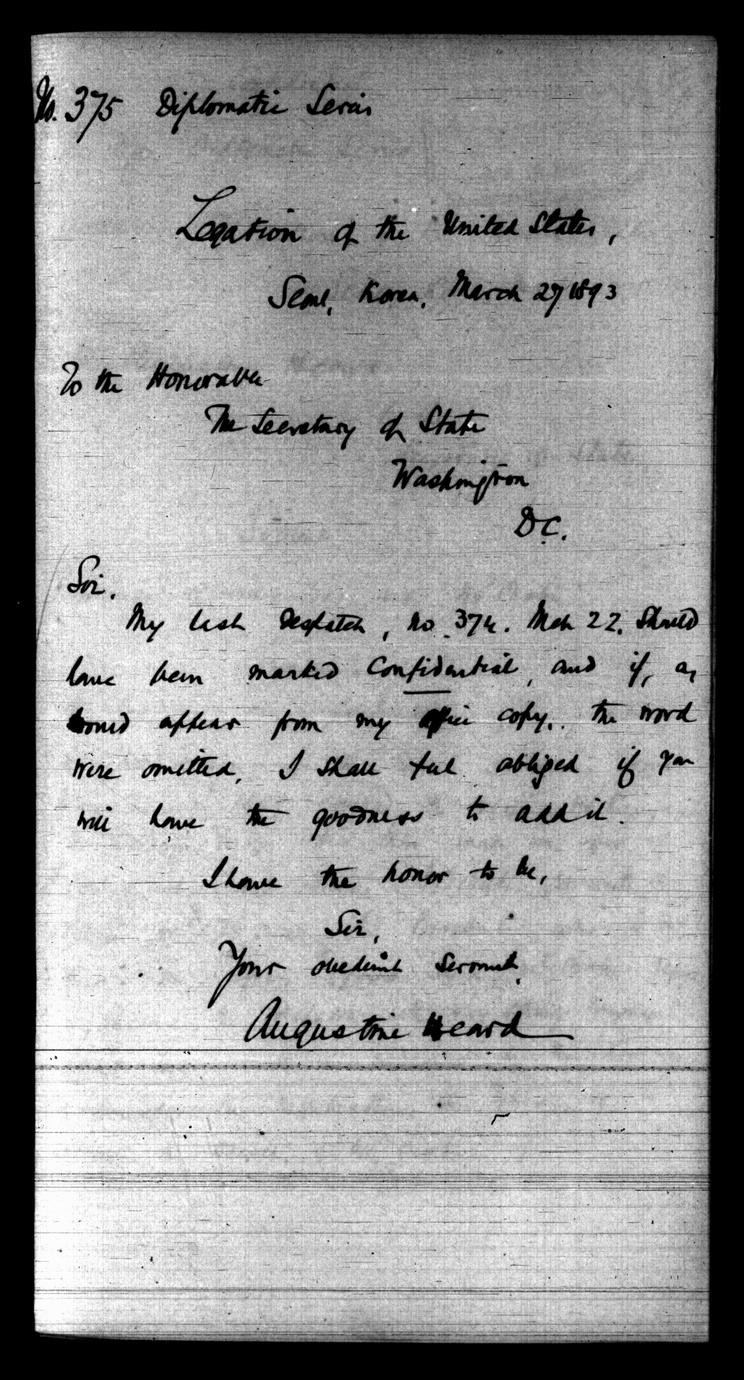 No. 375 Diplomatic Series
Legation of the United States,
Seoul, Korea, March 27 1893
To the Honorable
The Secretary of State
Washington
D.C.
Sir.
My last Despatch, no. 374. Mch 22. Should
have been marked Confidential, and if, as
would appear from my office copy, the word
were omitted, I shall feel obliged if you
will have the goodness to add it.
I have the honor to be,
Sir,
Your obedient Servant,
Augustine Heard